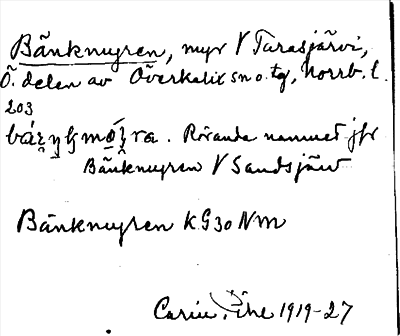 Bänkmyren, myr V Tarasjärvi,
Ö. delen av Överkalix sn o. tg, Norrb. l.
203
Rörande namnet jfr
Bänkmyren V Sandsjärv
Bänkmyren KG30NM
1919-27